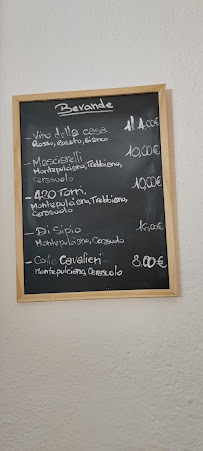 Bevande
- Vino della casa 1l 4,00€
Rosso, Rosato, Bianco
- Masciarelli 10,00€
Montepulciano, Trebbiano,
Cerasuolo
- 420 Torri, 10,00€
Montepulciano, Trebbiano,
Cerasuolo
- Di Sipio
Montepulciano, Cerasuolo
- Colle Cavalieri 8,00€
Montepulciano, Cerasuolo